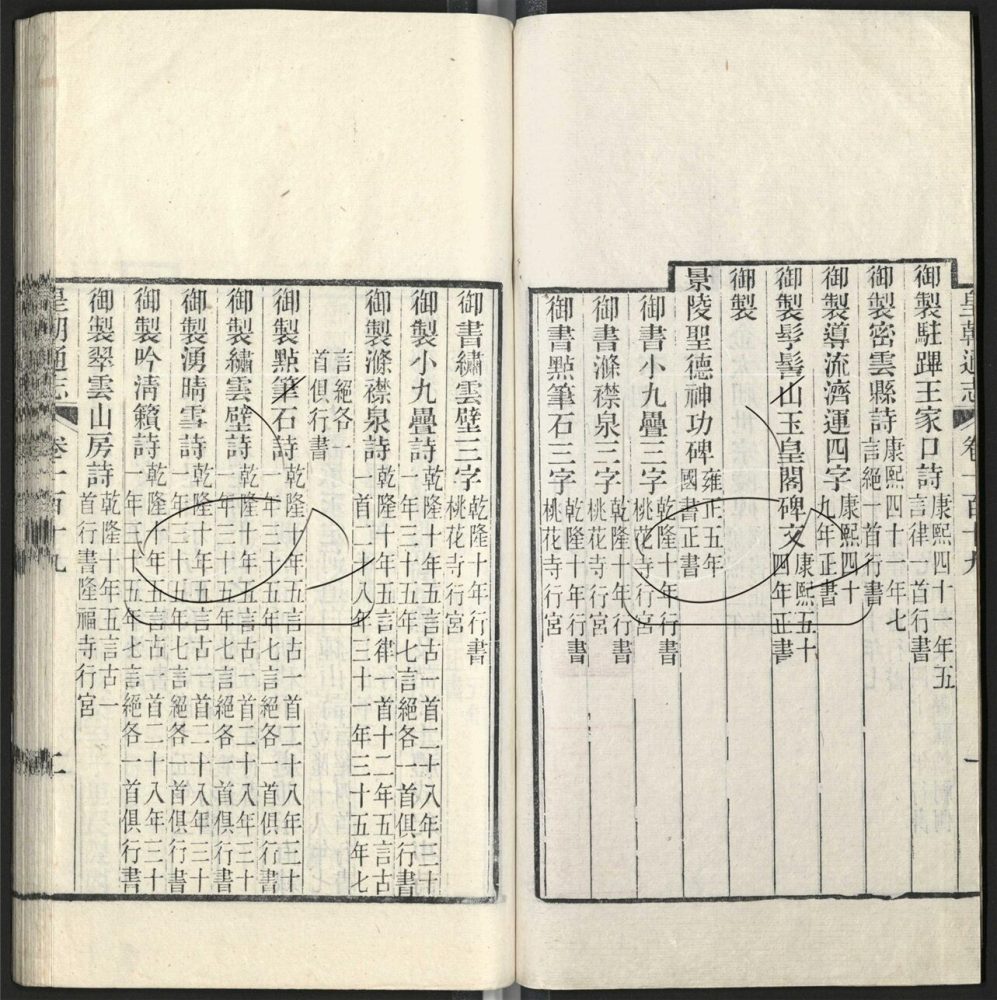 皇朝通志 卷一百十九 一
御製駐蹕王家口詩康熙四十一年五言律一首行書
御製密雲縣詩康熙四十一年七言絕一首行書
御製導流濟運四字康熙四十九年正書
御製髻山玉皇閣碑文康熙五十四年正書
御製
景陵聖德神功碑雍正五年國書正書
御書小九疊三字乾隆十年行書桃花寺行宮
御書滌襟泉三字乾隆十年行書桃花寺行宮
御書點筆石三字乾隆十年行書桃花寺行宮
御書繡雲壁三字乾隆十年行書桃花寺行宮
御製小九疊詩乾隆十年五言古一首二十八年三十一年三十五年七言絕各一首俱行書
御製滌襟泉詩乾隆十年五言律一首十二年五言古一首二十八年三十一年三十五年七
言絕各一首俱行書
御製點筆石詩乾隆十年五言古一首二十八年三十一年三十五年七言絕各一首俱行書
御製繡雲壁詩乾隆十年五言古一首二十八年三十一年三十五年七言絕各一首俱行書
御製湧晴雪詩乾隆十年五言古一首二十八年三十一年三十五年七言絕各一首俱行書
御製吟清籟詩乾隆十年五言古一首二十八年三十一年三十五年七言絕各一首俱行書
御製翠雲山房詩乾隆十年五言古一首行書隆福寺行宮
皇朝通志 卷一百十九 二